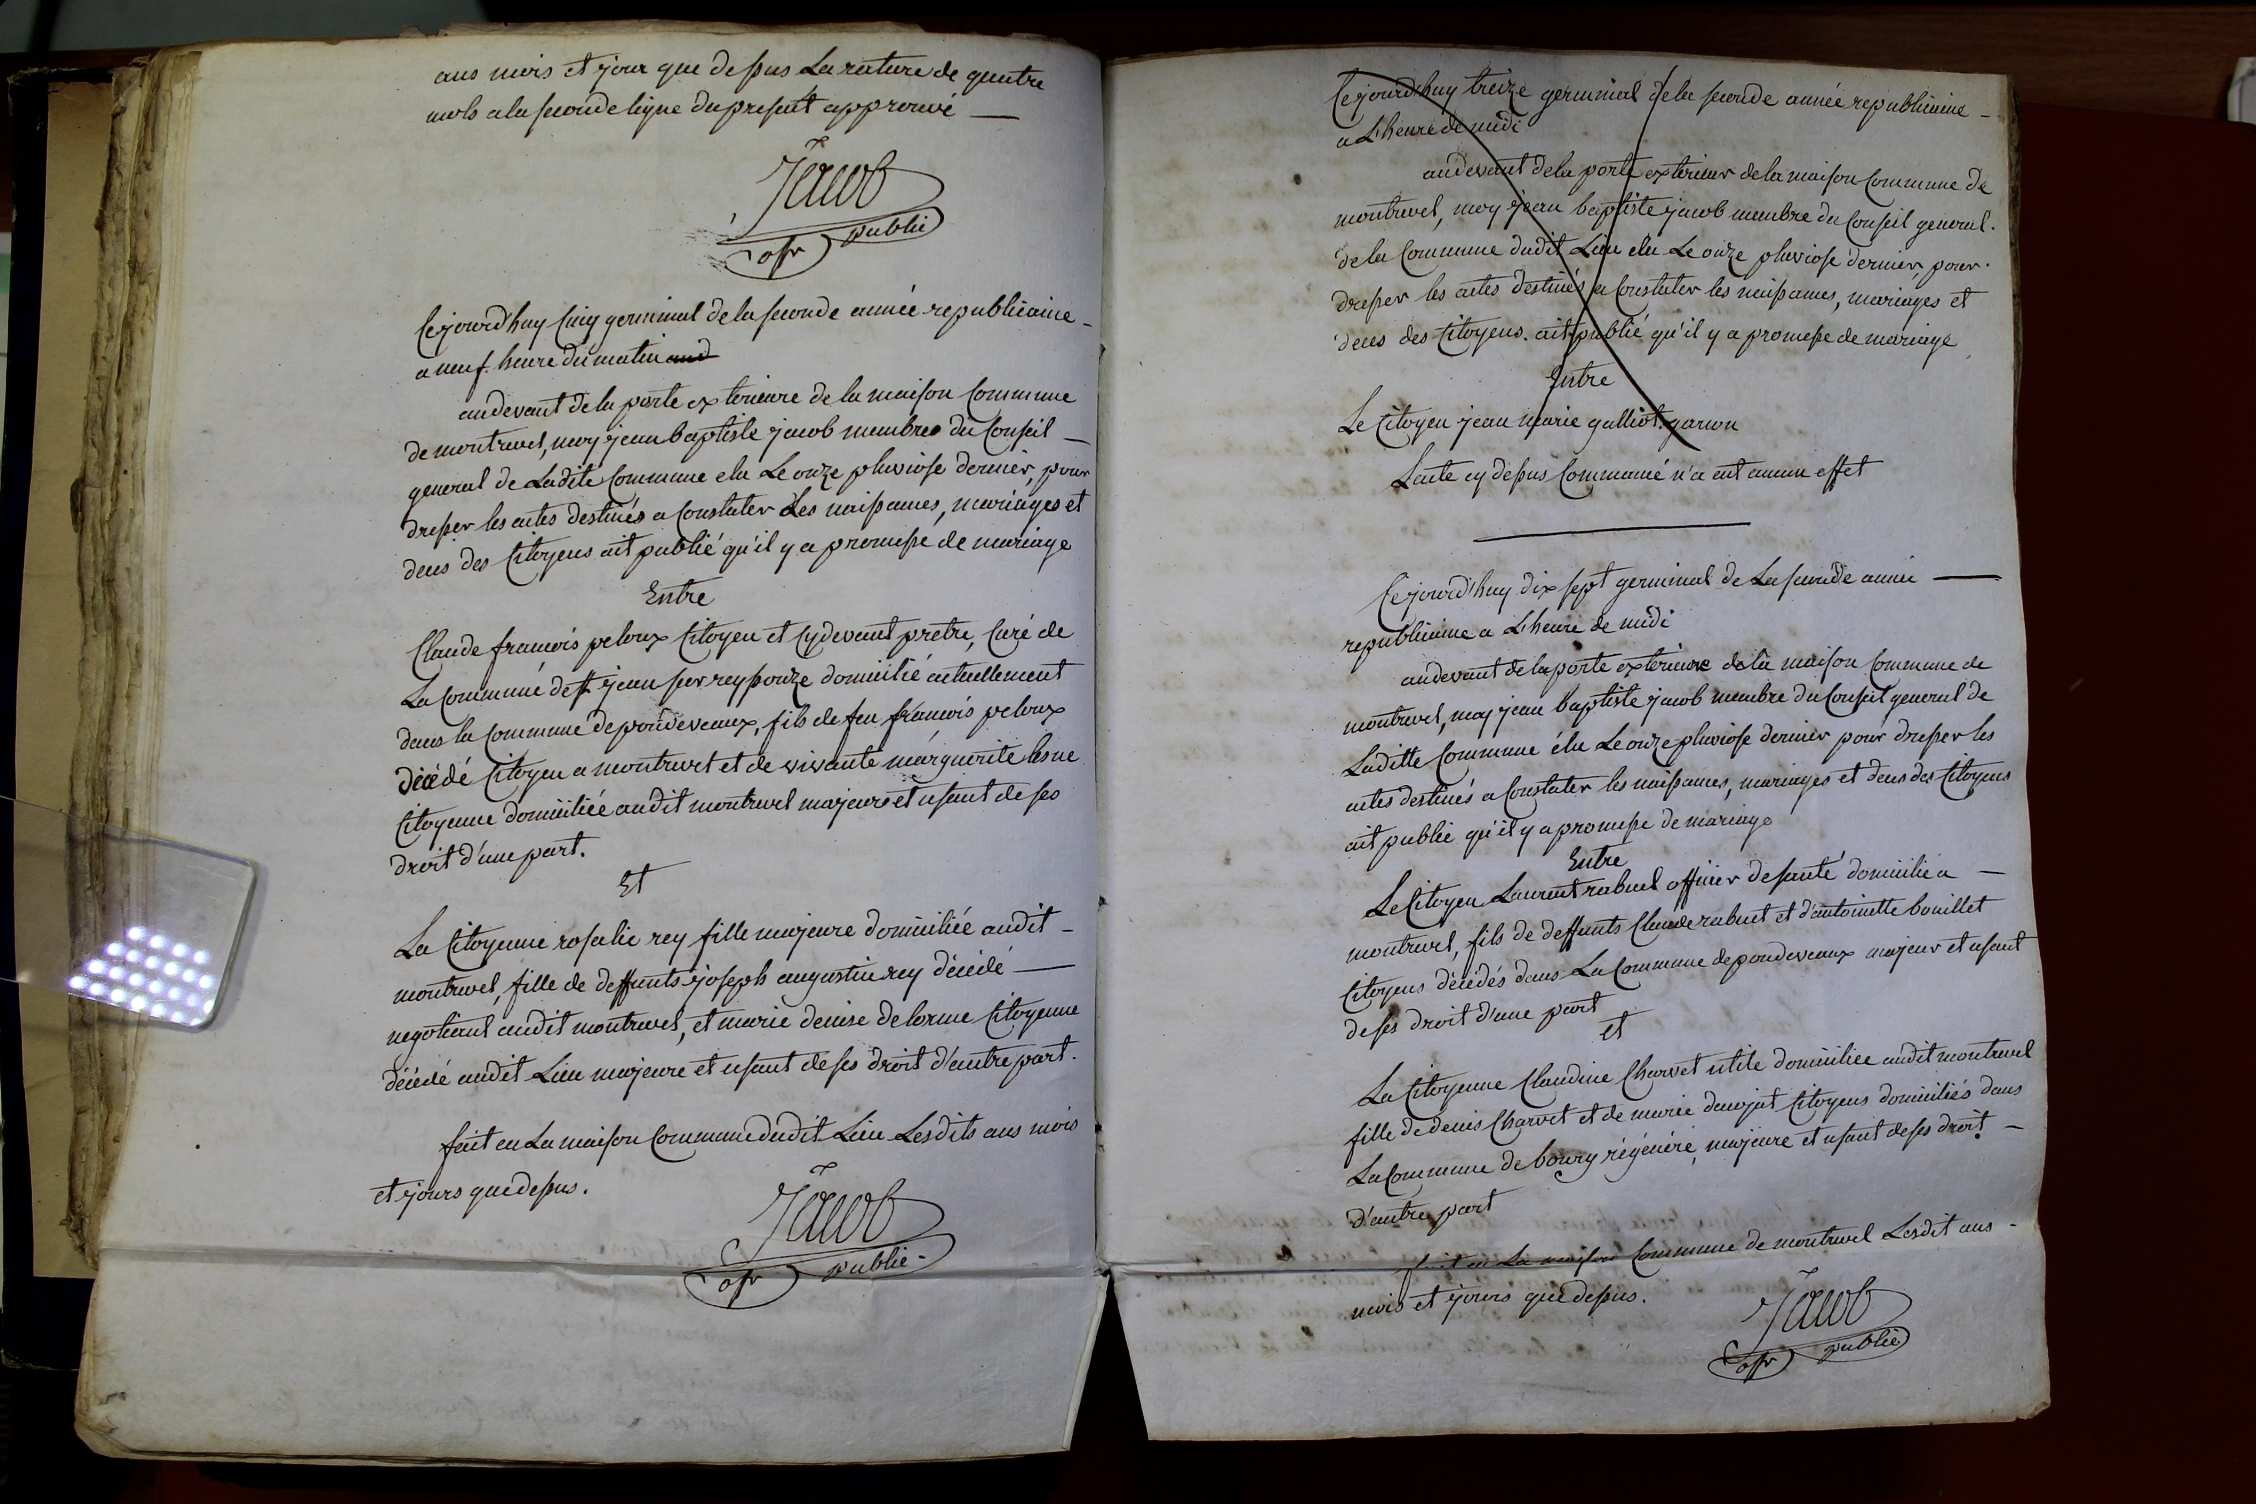 ans mois et jour que dessus La rature de quatre
mots a la seconde ligne du present approuvé
Jacob
offr public
Cejourd'huy Cinq germinal de la seconde année republicaine
a neuf heure du matin aud
audevant de la porte exterieure de la maison Commune
de montrevel, moy jean baptiste jacob membre du Conseil
general de Ladite Commune elu Le onze pluviose dernier, pour
dresser les actes destinés a Constater Les naissances, mariages et
deces des Citoyens ait publié qu'il y a promesse de mariage
Entre
Claude francois peloux Citoyen et Cydevant pretre, Curé de
La Commune de st jean sur reyssouze domicilié actuellement
dans la Commune de pondeveaux, fils de feu francois peloux
décédé Citoyen a montrevel et de vivante marguerite lesne
Citoyenne domiciliée audit montrevel majeure et usant de ses
droit d'une part.
Et
La Citoyenne rosalie rey fille majeure domiciliée audit
montrevel, fille de deffunts joseph augustin rey décédé
negotiant audit montrevel, et marie denise delorme Citoyenne
décédé audit Lieu majeure et usant de ses droit d'autre part.
fait en La maison Commune dudit Lieu Lesdits ans mois
et jours que dessus.
Jacob
offr public
Cejourd'huy treize germinal de la seconde année republicaine
a L'heure de midi
audevant de la porte exterieur de la maison Commune de
montrevel, moy jean baptiste jacob membre du Conseil general
de la Commune dudit Lieu elu Le onze pluviose dernier, pour
dresser les actes destinés a Constater les naissances, mariages et
deces des Citoyens. ait publié qu'il y a promesse de mariage
Entre
Le Citoyen jean marie galliot garcon
L'acte cy dessus Commancé n'a ait aucun effet
Cejourd'huy dix sept germinal de La seconde année
republicaine a L'heure de midi
audevant de la porte exterieure de la maison Commune de
montrevel, moy jean baptiste jacob membre du Conseil general de
Laditte Commune élu Le onze pluviose dernier pour dresser les
actes destinés a Constater les naissances, mariages et deces des Citoyens
ait publié qu'il y a promesse de mariage
Entre
Le Citoyen Laurent rabuel officier de santé domicilié a
montrevel, fils de deffunts Claude rabuel et d'antoinette bouillet
Citoyens décédés dans La Commune de pondeveaux majeur et usant
de ses droit d'une part
et
La Citoyenne Claudine Charvet utile domiciliee audit montrevel
fille de denis Charvet et de marie Citoyens domiciliés dans
La Commune de bourg régénéré, majeure et usant de ses droit
d'autre part
fait en La maison Commune de montrevel Lesdit ans
mois et jours que dessus.
Jacob
offr public